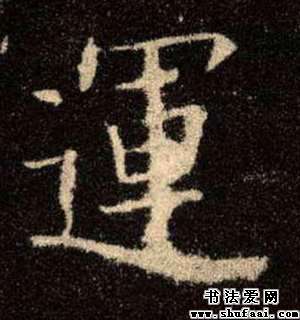 運
书法爱网
www.shufaai.com